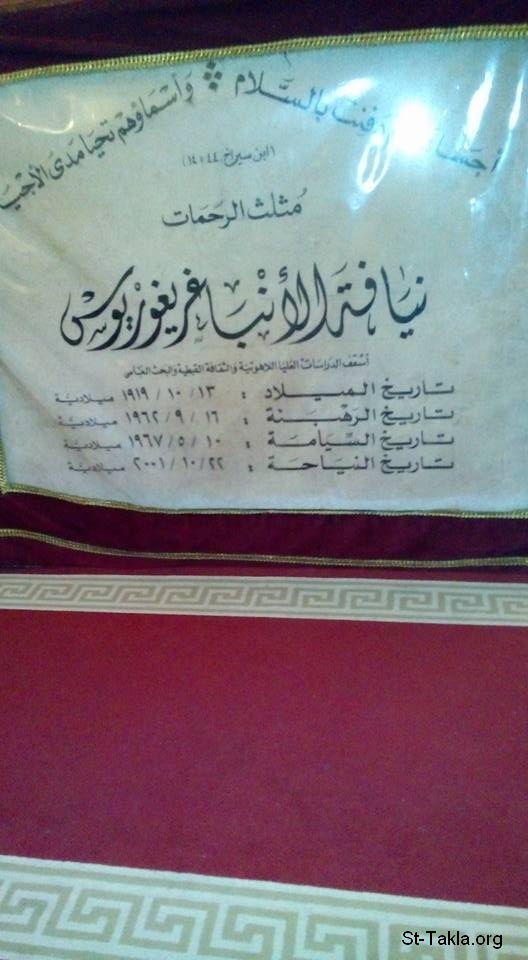 بالسلام وأسماؤهم تحيا مدى
(ابن سيراخ ٤٤ : ١٤)
مثلث الرحمات
نيافة الأنبا غريغوريوس
أسقف الدراسات العليا اللاهوتية والثقافة القبطية والبحث العلمي
تاريخ الميلاد : ١٣ / ١٠ / ١٩١٩ ميلادية
تاريخ الرهبنة : ١٦ / ٩ / ١٩٦٢ ميلادية
تاريخ السيامة : ١٠ / ٥ / ١٩٦٧ ميلادية
تاريخ النياحة : ٢٢ / ١٠ / ٢٠٠١ ميلادية
St-Takla.org